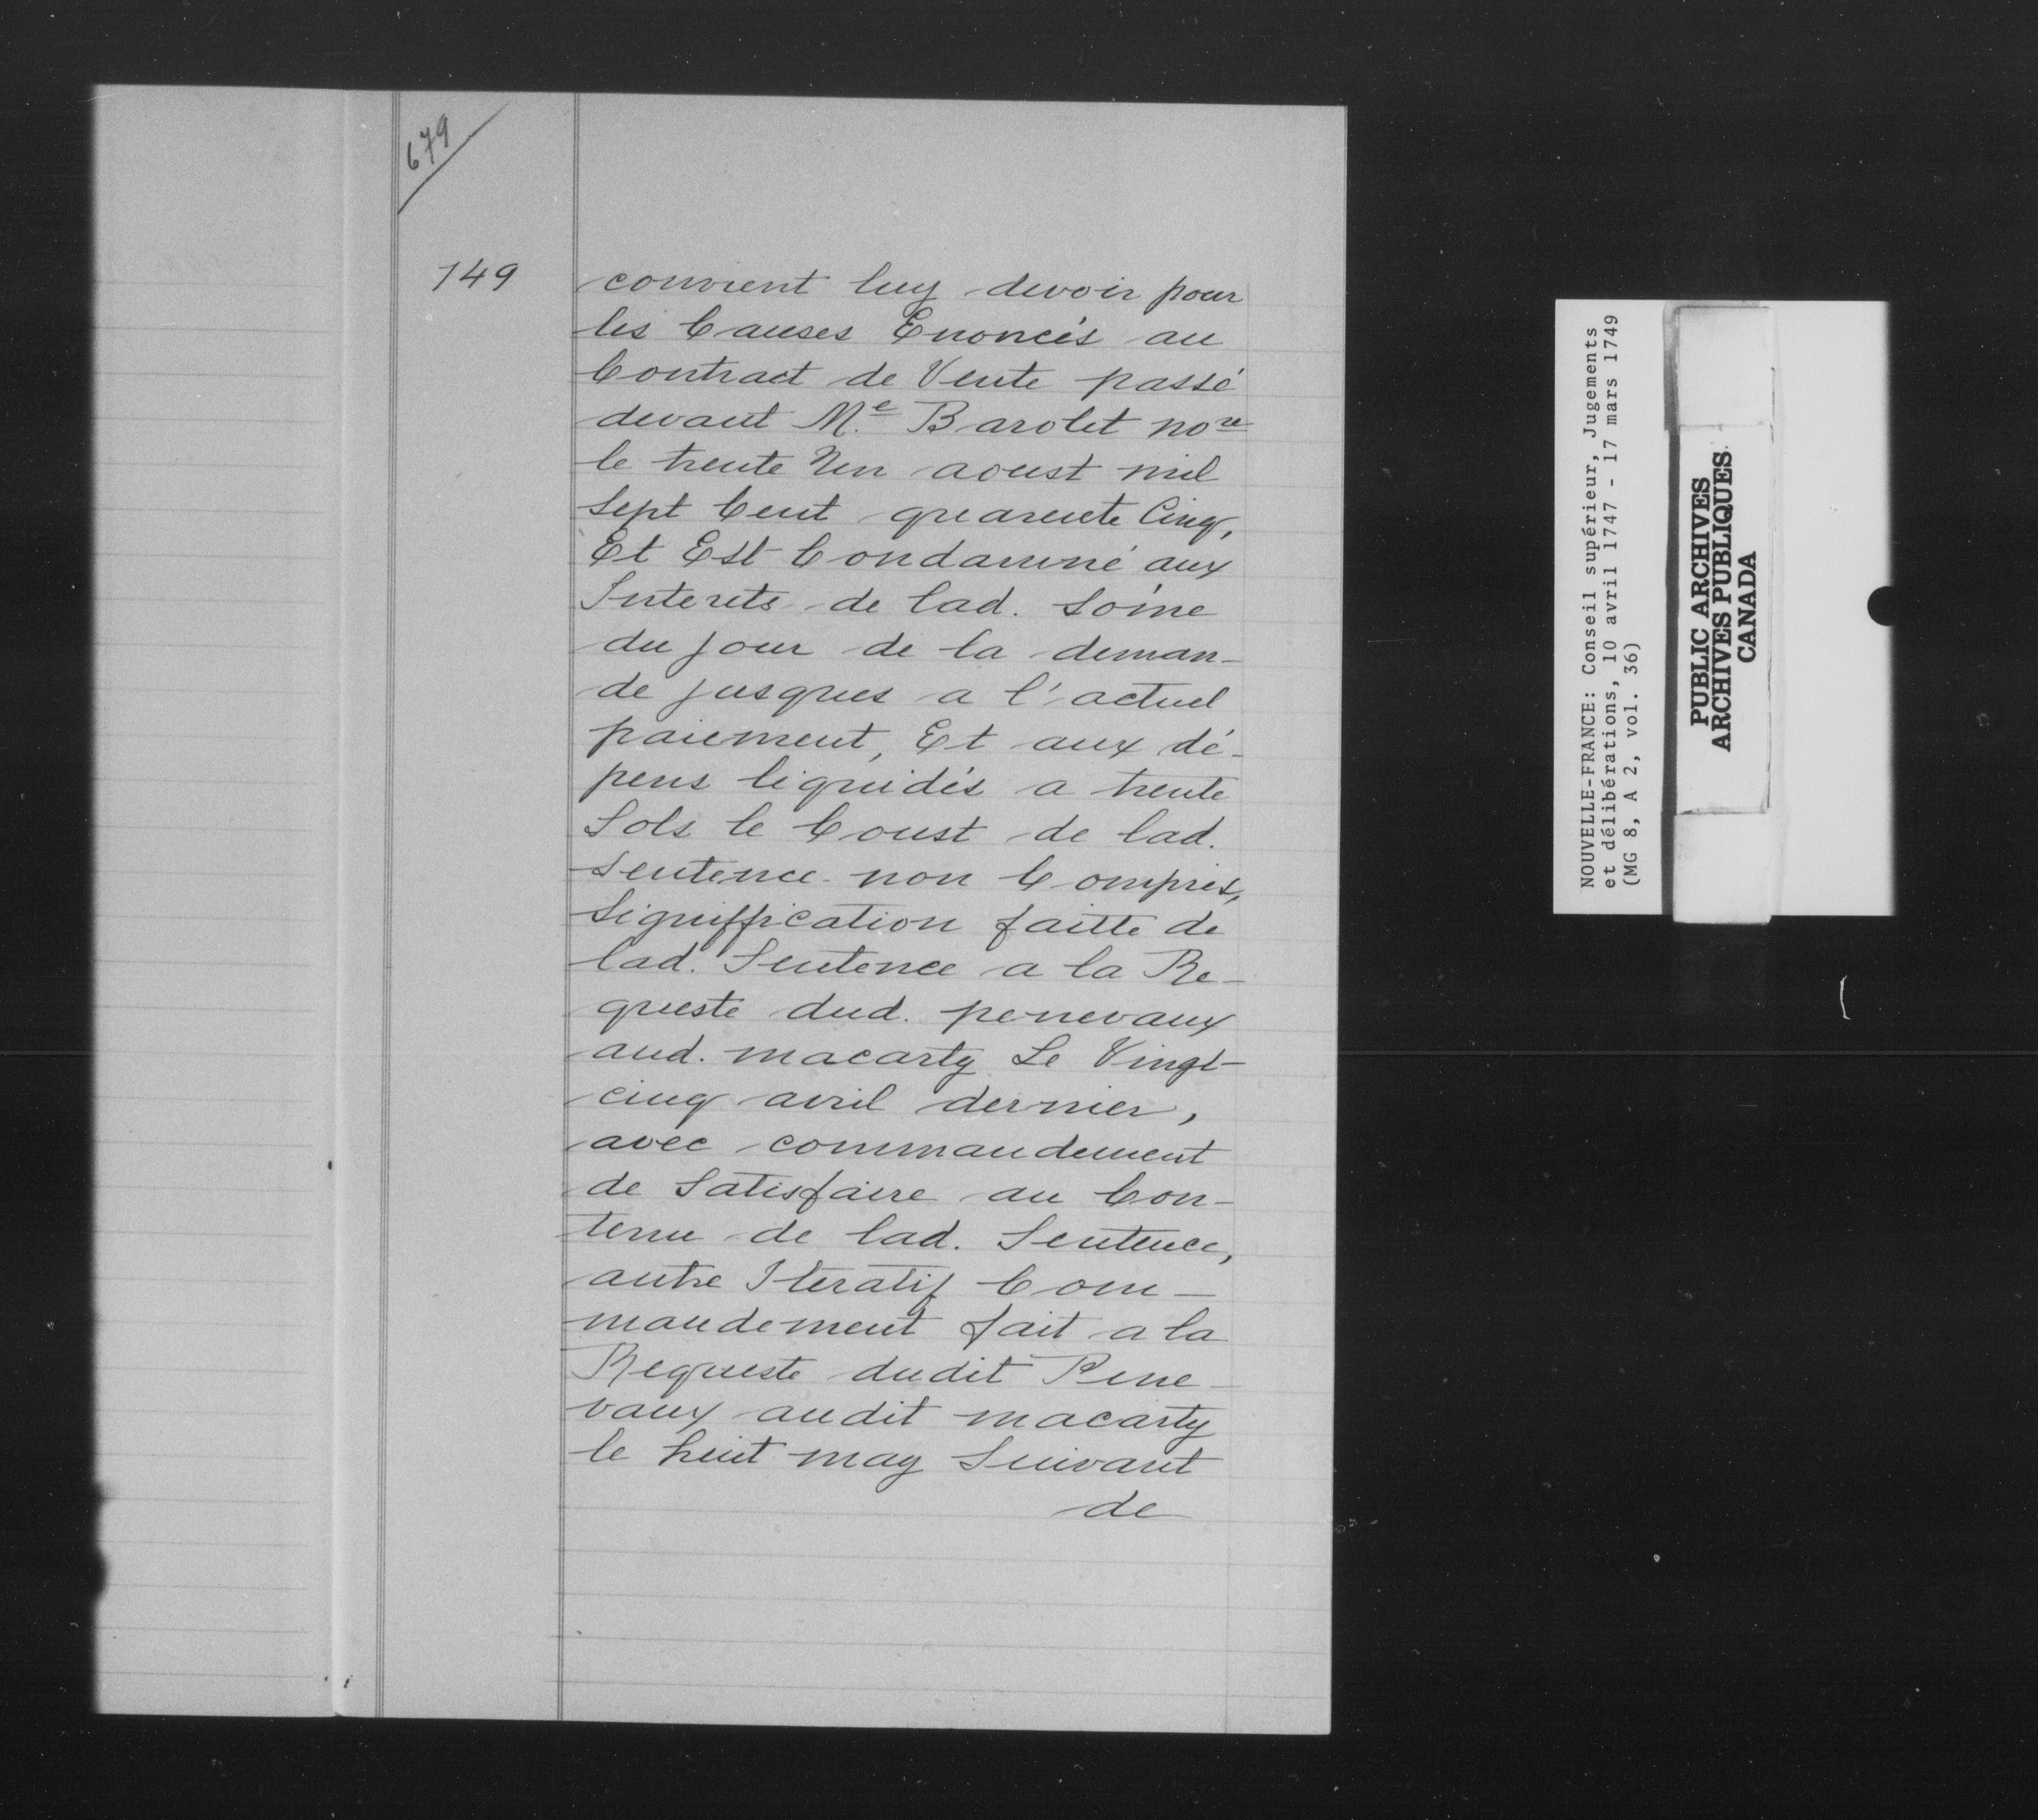 679
149
convient luy devoir pour
les Causes Enoncés au
Contract de Vente passé
devant M.e Barolet nore
le trente Un aoust mil
Sept Cent quarente Cinq,
Et Est Condamné aux
Interets de lad. Some
du jour de la deman-
de jusques a l'actuel
paiement, Et aux dé-
pens liquidés a trente
Sols le Coust de lad.
Sentence non Compris,
Signiffication faitte de
lad. Sentence a la Re-
queste dud. penevaux
aud. macarty Le Vingt-
cinq avril dernier,
avec commandement
de Satisfaire au Con-
tenu de lad. Sentence,
autre Iteratif Com-
mandement fait a la
Requeste dudit Pene-
vaux audit macarty
le huit may Suivant
de
NOUVELLE-FRANCE: Conseil supérieur, Jugements
et délibérations, 10 avril 1747 - 17 mars 1749
(MG 8, A 2, vol. 36)
PUBLIC ARCHIVES
ARCHIVES PUBLIQUES
CANADA